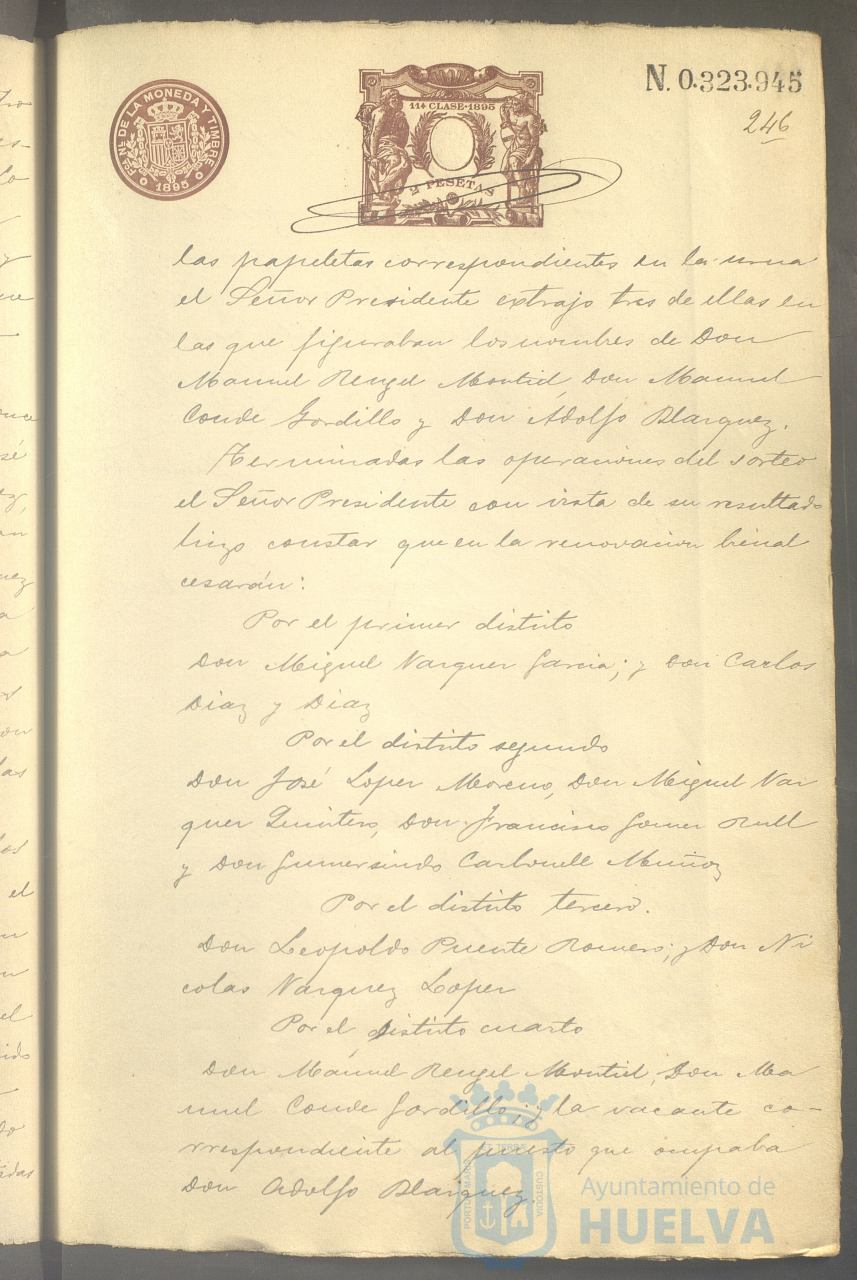 FCA. NL. DE LA MONEDA Y TIMBRE
1895
11ª CLASE·1895
2 PESETAS
N. 0.323.945
246
las papeletas correspondientes en la urna
el Señor Presidente extrajo tres de ellas en
las que figuraban los nombres de Don
Manuel Rengel Montiel, Don Manuel
Conde Gordillo y Don Adolfo Blazquez.
Terminadas las operaciones del sorteo
el Señor Presidente con vista de su resultado
hizo constar que en la renovacion bienal
cesarán:
Por el primer distrito
Don Miguel Vazquez Garcia; y Don Carlos
Diaz y Diaz
Por el distrito segundo
Don José Lopez Moreno, Don Miguel Vaz
quez Quintero, Don Francisco Gomez Rull
y Don Gumersindo Carbonell Muñoz
Por el distrito tercero.
Don Leopoldo Puente Romero; y Don Ni
colas Vazquez Lopez
Por el distrito cuarto
Don Manuel Rengel Montiel, Don Ma
nuel Conde Gordillo, y la vacante co-
rrespondiente al puesto que ocupaba
Don Adolfo Blazquez.
PORTUS MARIS
ET TERRÆ
CUSTODIA
Ayuntamiento de
HUELVA